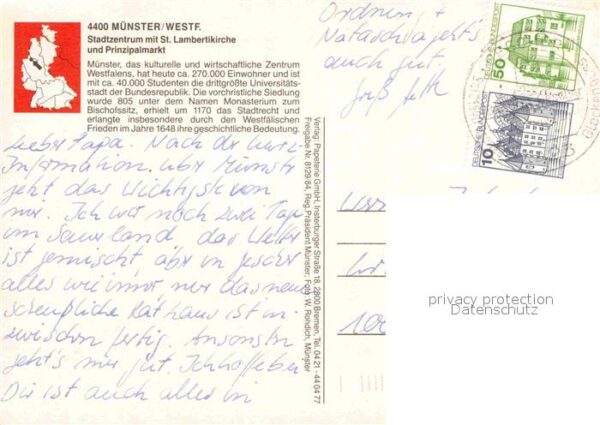 4400 MÜNSTER/WESTF.
Stadtzentrum mit St. Lambertikirche
und Prinzipalmarkt
Münster, das kulturelle und wirtschaftliche Zentrum
Westfalens, hat heute ca. 270.000 Einwohner und ist
mit ca. 40.000 Studenten die drittgrößte Universitäts-
stadt der Bundesrepublik. Die vorchristliche Siedlung
wurde 805 unter dem Namen Monasterium zum
Bischofsitz, erhielt um 1170 das Stadtrecht und
erlangte insbesondere durch den Westfälischen
Frieden im Jahre 1648 ihre geschichtliche Bedeutung.
Lieber Papa. Nach der kurzen
Information über Münster
jetzt das Wichtigste von
mir. Ich war noch zwei Tage
im Sauerland das Wetter
ist gemischt aber in
alles wie immer nur das neue
scheußliche Rathaus ist in-
zwischen fertig. Ansonsten
geht's mir gut. Ich hoffe bei
Dir ist auch alles in
Ordnung &
Natascha geht's
auch gut.
Gruß
Verlag: Papeterie GmbH, Insterburger Straße 18, 2800 Bremen, Tel. 04 21 - 44 04 77
Freigabe Nr. 8129/84, Reg. Präsident Münster, Foto W. Rohdich, Münster
50
DEUTSCHE BUNDESPOST
10
DEUTSCHE BUNDESPOST
privacy protection
Datenschutz